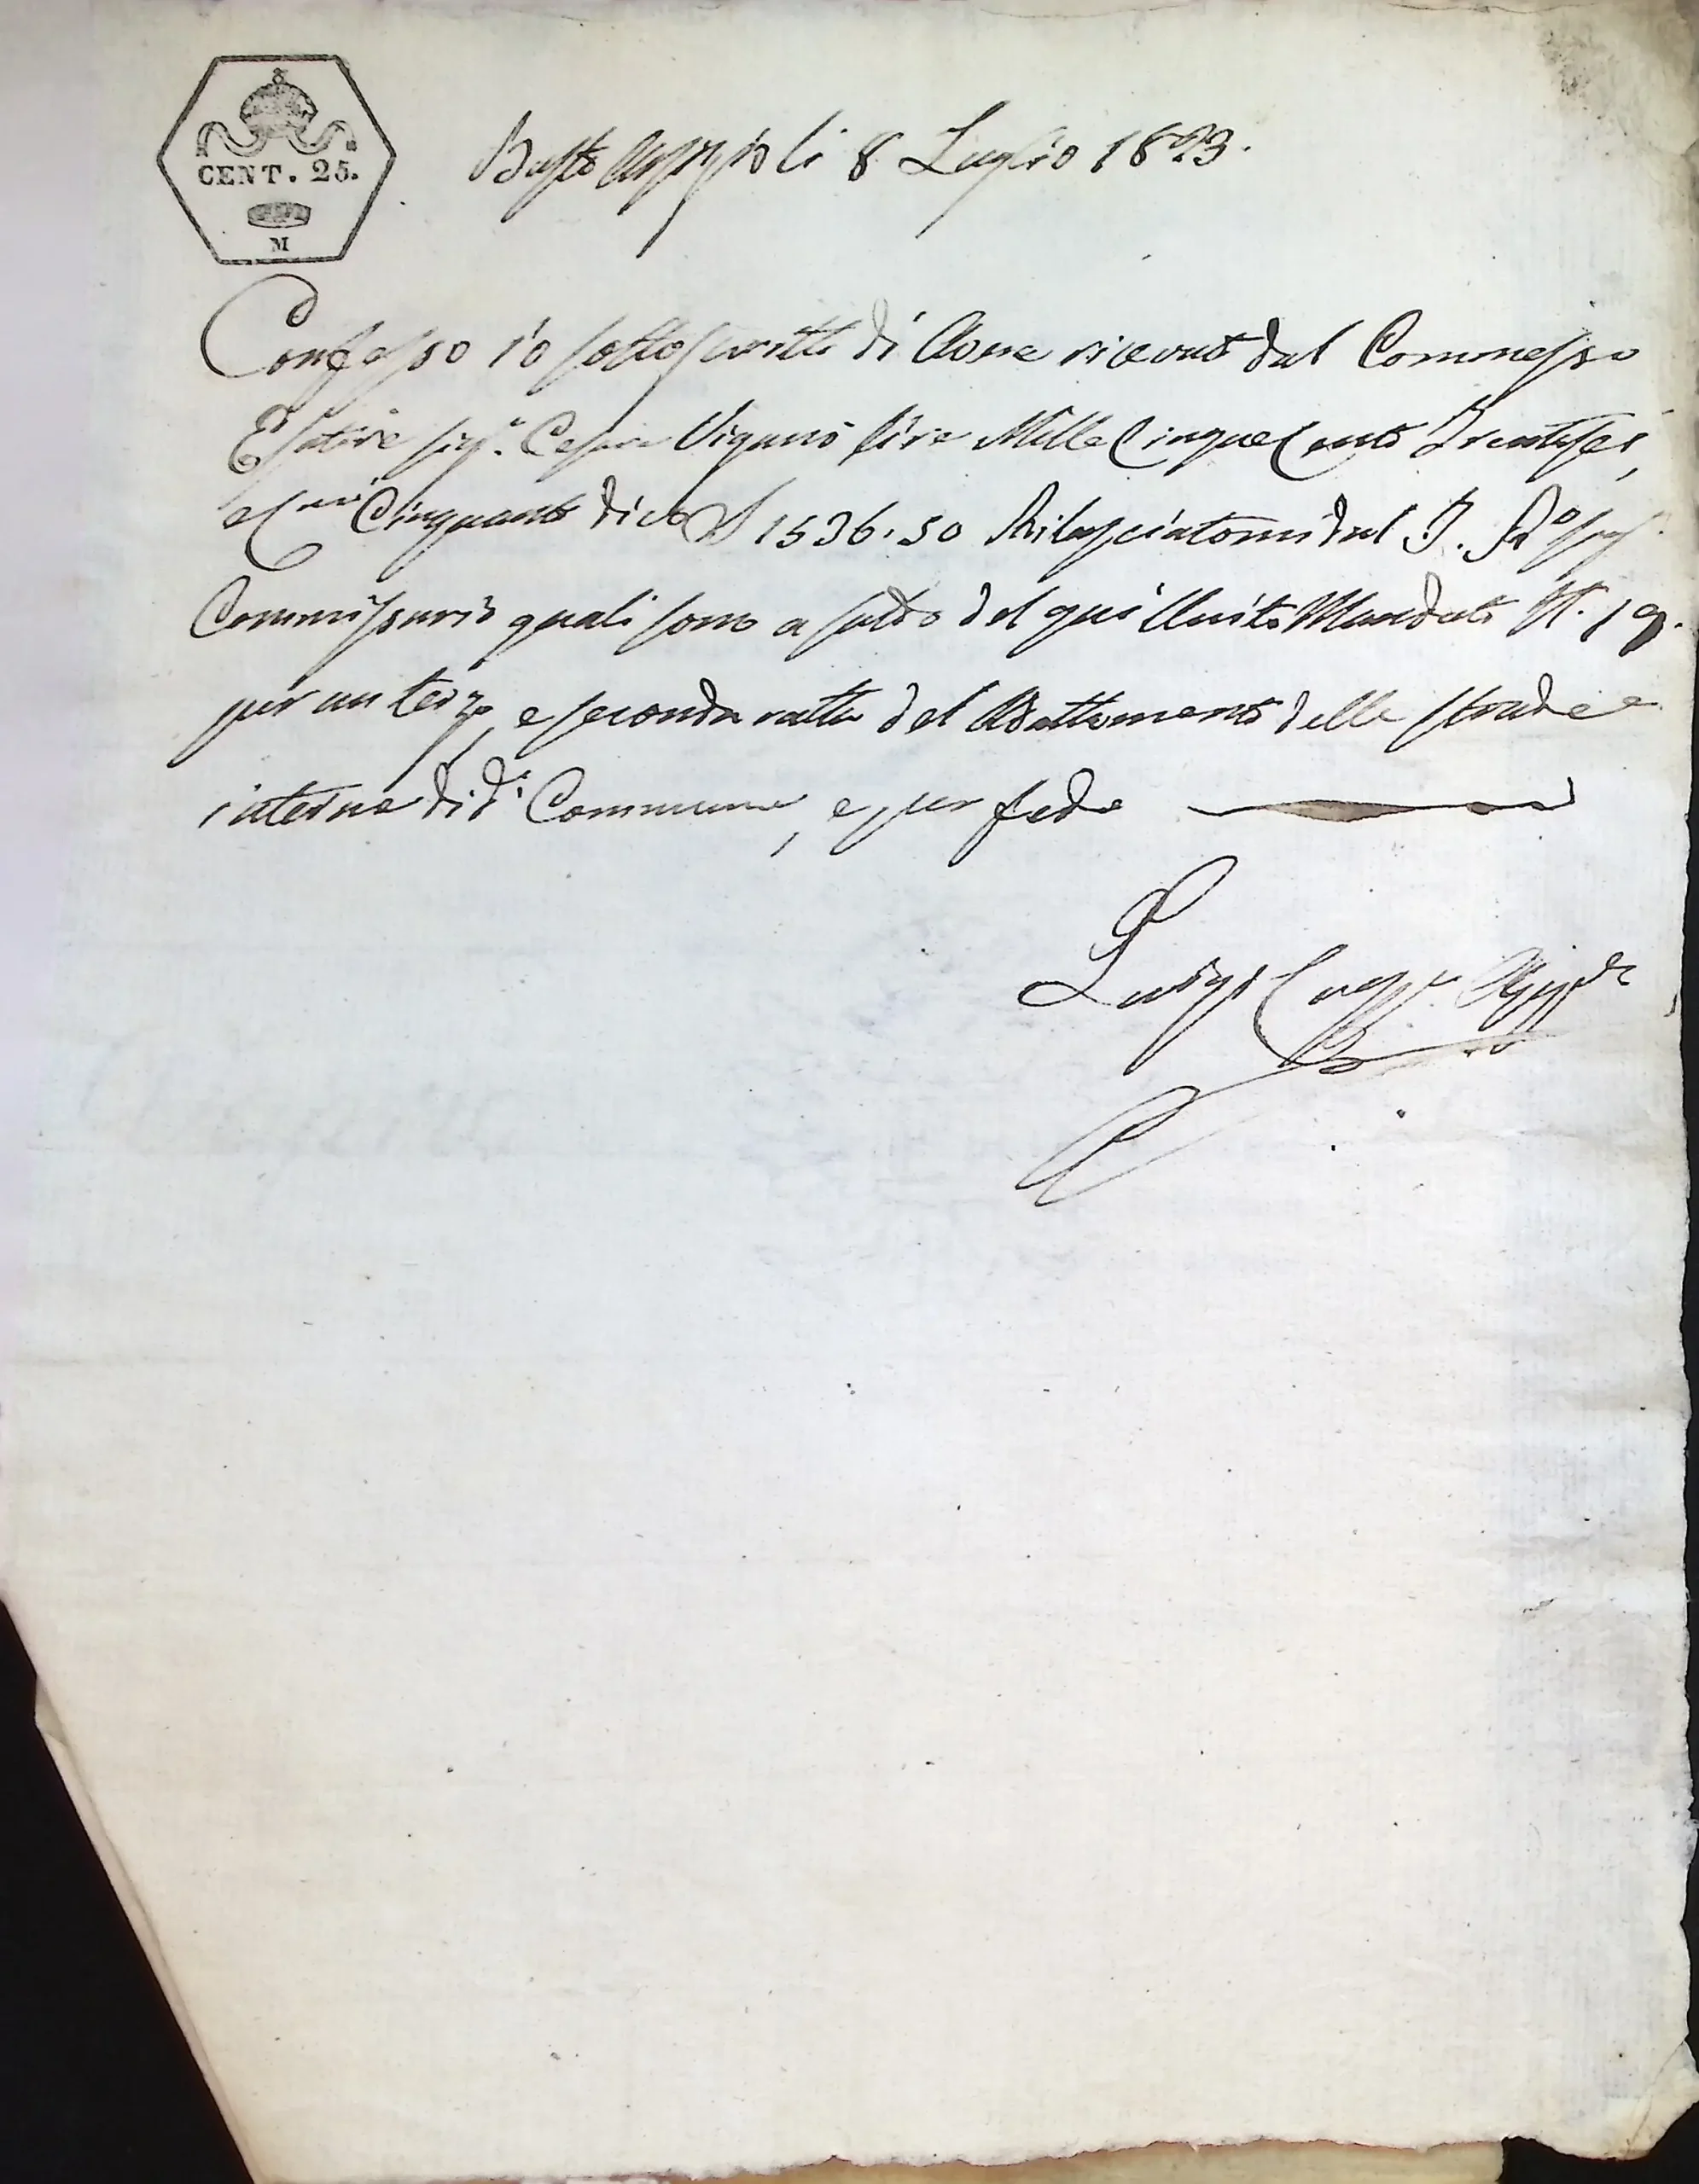 CENT. 25.
M
Busto Arsizio li 8 Luglio 1823.
Confesso io sottoscritto di Avere ricevuto dal Commesso
Esatore sigr. Cesare Viganò lire Mille Cinque Cento Trentasei,
e Cmi Cinquanta dico £ 1536.50 Rilasciatomi dal I. Ro sigr.
Commissario quali sono a saldo del quì Unito Mandato N. 19.
per un terzo, e seconda ratta del Adattamento delle strade
interne di do. Commune, e per fede
Luigi